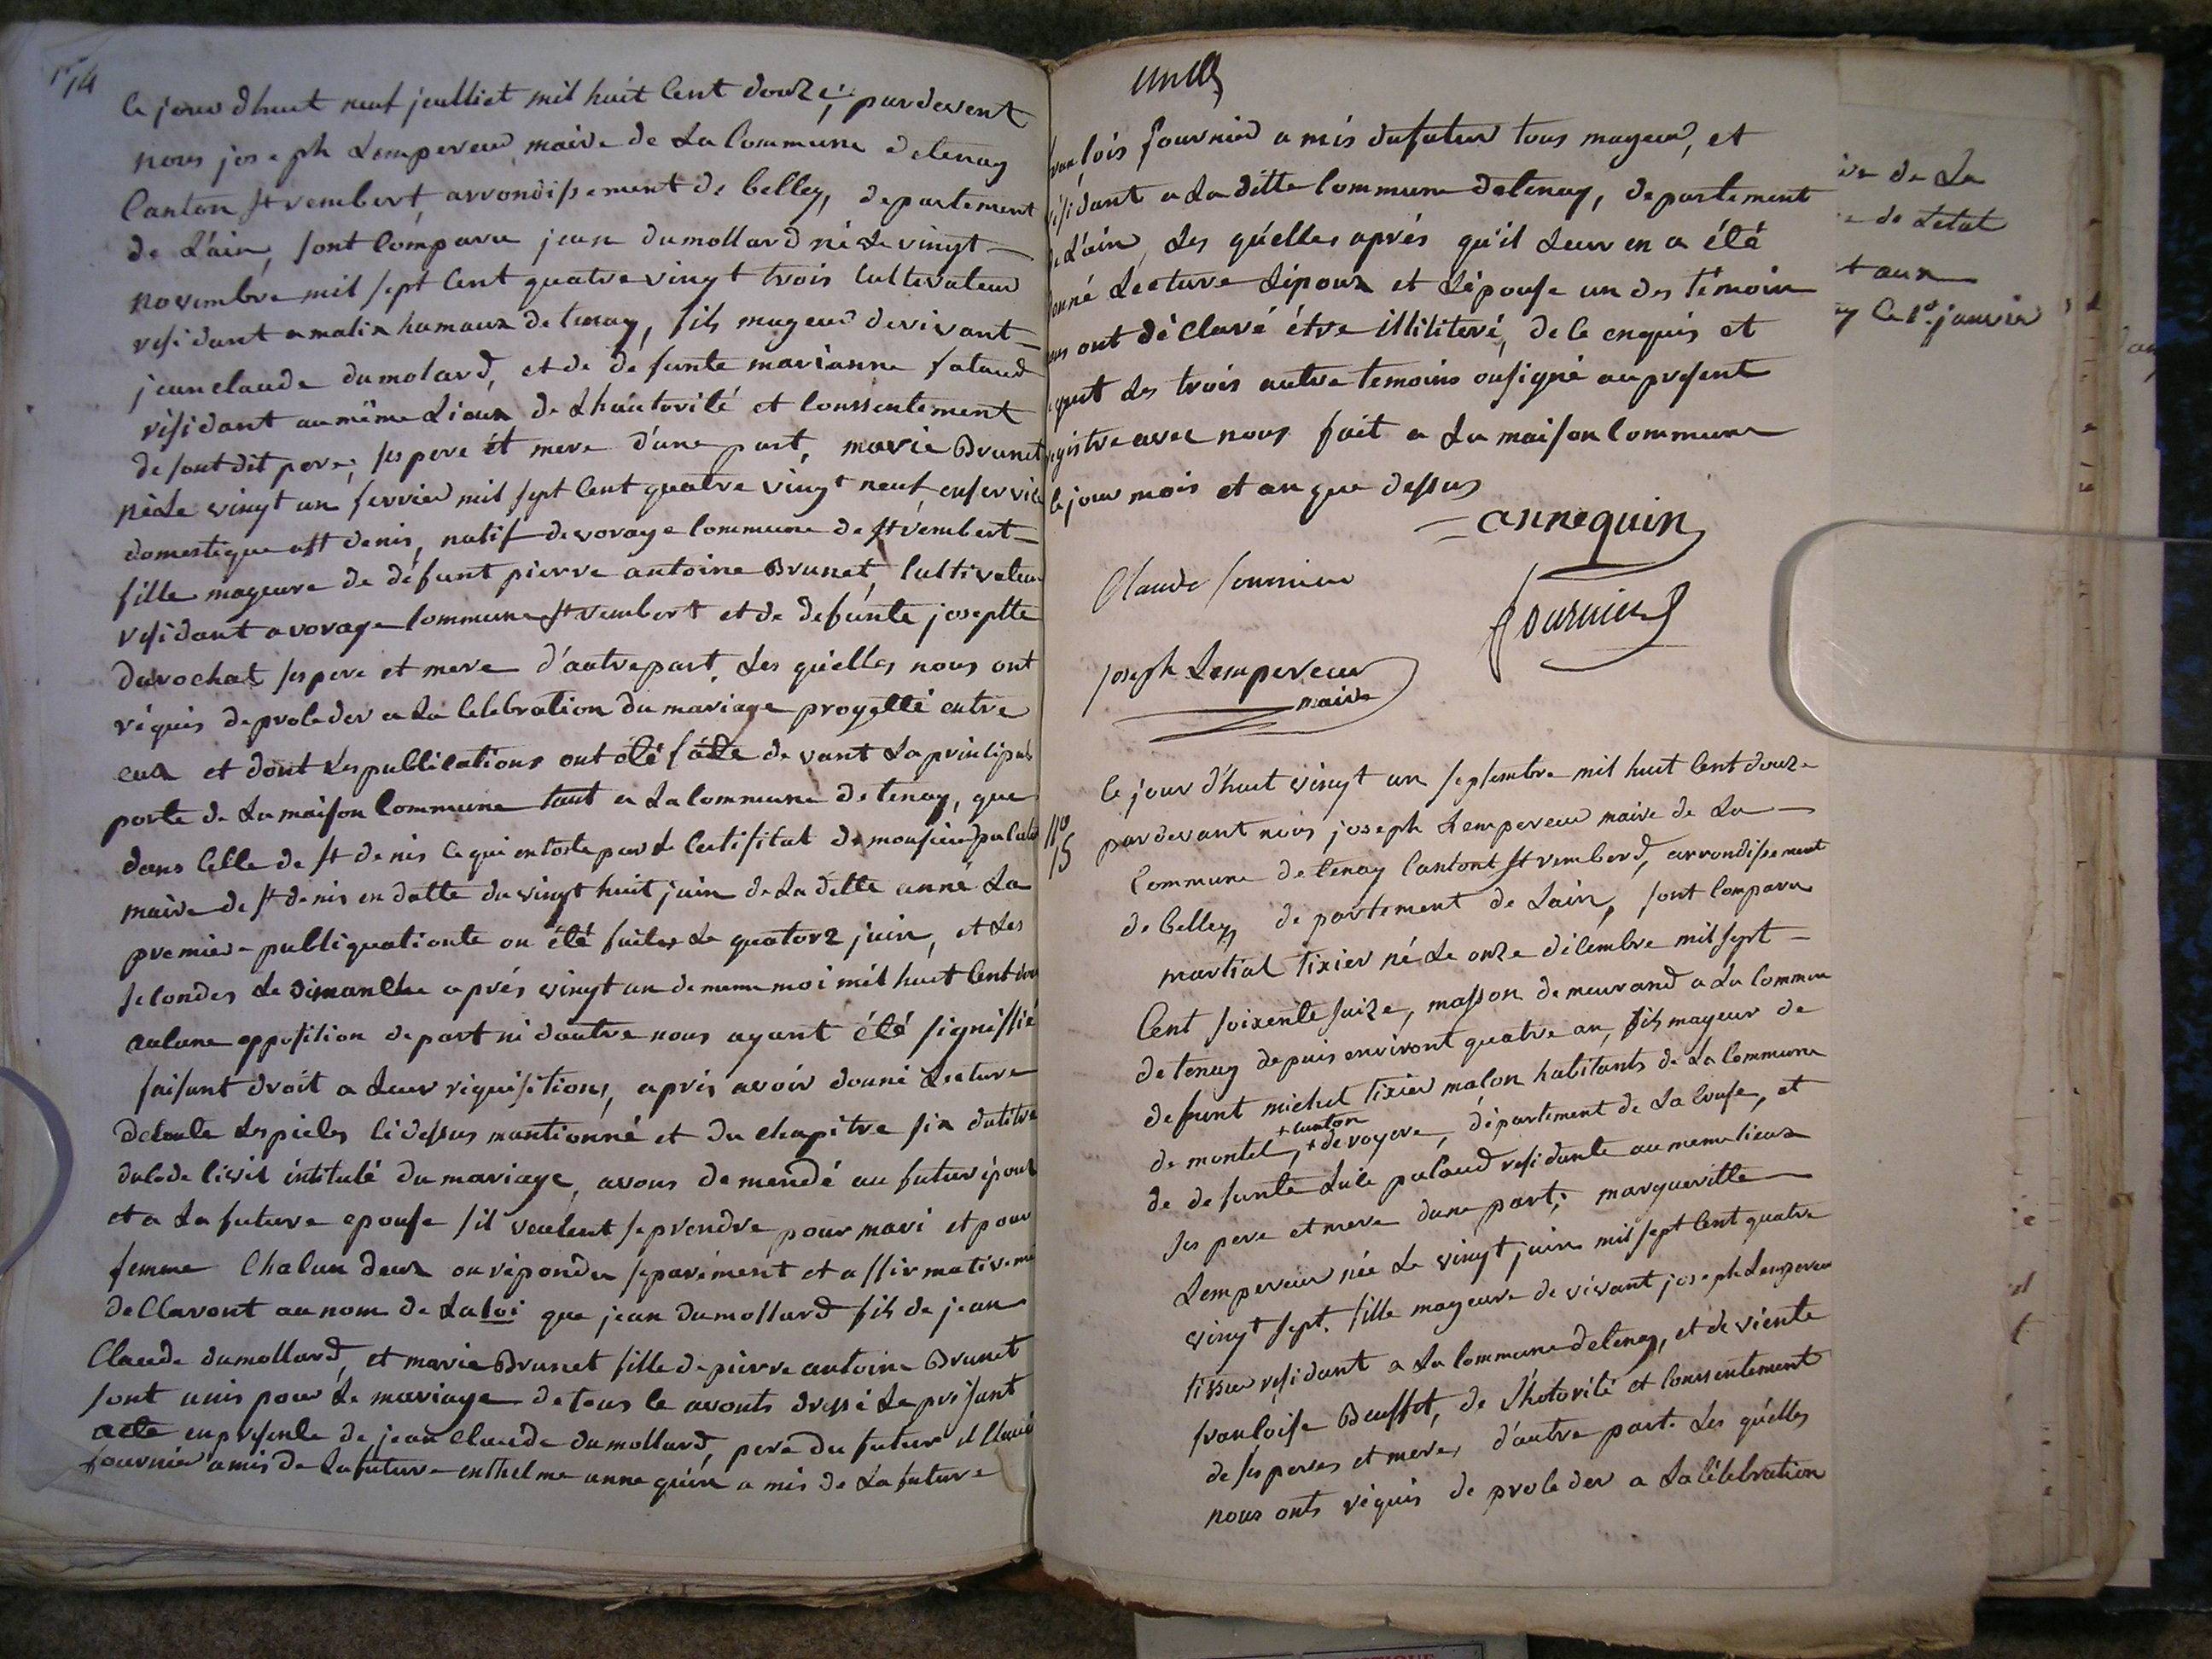 14
Ce jour dhuit neuf jeulliet mil huit Cent douze, pardevent
nous joseph Lempereur maire de La Commune detenay
Canton st rembert, arrondissement de belley, departement
de L'ain, sont Comparu jean dumollard né Le vingt
novembre mil sept Cent quatre vingt trois Cultivateur
residant a malix hamaux de tenay, fils mageur de vivant
jean claude dumolard, et de defunte marianne
résidant au même Lieux de Lhautorité et Conssentement
de sont dit pere, ses pere et mere d'une part, marie Brunet
née Le vingt un fevrier mil sept Cent quatre vingt neuf en service
domestique a st denis, natif de vorage Commune de st rembert
fille mageure de défunt pierre antoine Brunet, Cultivateur
residant a vorage Commune st rembert et de defunte josephte
durochat ses pere et mere d'autre part, Les quelles nous ont
réquis de proceder a La Celebration du mariage progetté entre
eux et dont Les publications ont été faite devant La principale
porte de La maison Commune tant a La Commune de tenay, que
dans Celle de st denis Ce qui par Le Certificat de monsieur
maire de st denis en datte du vingt huit juin de La ditte anné La
premiere on été faites Le quatorz juin, et Les
secondes Le dimanche aprés vingt un de meme moi mil huit Cent douze
aucune opposition de part ni dautre nous ayant été signiffié
faisant droit a Leur requisitions, apris avoir donné Lecture
de toute Les pieces Ci dessus mantionné et du chapitre six du titre
du Code Civil intitulé du mariage, avons demendé au futur époux
et a La future epouse sil veulent se prendre pour mari et pour
femme Chacun deux on répondu séparément et affirmativement
de Claront au nom de La loi que jean dumollard fils de jean
Claude dumollard, et marie Brunet fille de pierre antoine Brunet
sont unis pour Le mariage de tous Ce avonts dressé Le présant
acte en presence de jean Claude dumollard, pere du futur et Claude
fournier amis de La future anthelme annequin a mis de La future
françois fournier a mis du futur tous mageur, et
résidant a La ditte Commune detenay, departement
de L'ain, Les quelles aprés qu'il Leur en a été
donné Lecture Lépoux et Lépouse un des témoin
nous ont déclaré étre illiteré, de Ce enquis et
Les trois autre temoins au present
registre avec nous fait a La maison Commune
Le jour mois et an que dessus
annequin
Claude fournier
fournier
joseph Lempereur
maire
no
15
Ce jour d'huit vingt un septembre mil huit Cent douze
pardevant nous joseph Lempereur maire de La
Commune de tenay Cantont st remberd, arrondissement
de belley, departement de Lain, sont Comparu
martial tixier né Le onze décembre mil sept
Cent soixente saize, masson demeurand a La Commun
de tenay depuis environt quatre an, fils mageur de
defunt michel tixier maçon habitants de La Commune
+ canton
de montel, + de royere, département de La Creuse, et
de defunte residante au meme lieux
ses pere et mere dune part, margueritte
Lempereur née Le vingt juin mil sept Cent quatre
vingt sept, fille mageure de vivant joseph Lempereur
tissier residant a La Commune detenay, et de viente
francoise, de L'hotorité et Conssentement
de ses peres et meres d'autre part Les quelles
nous onts réquis de proceder a La célebration
ire de La
de Létat
t aux
y Ce 1er janvier